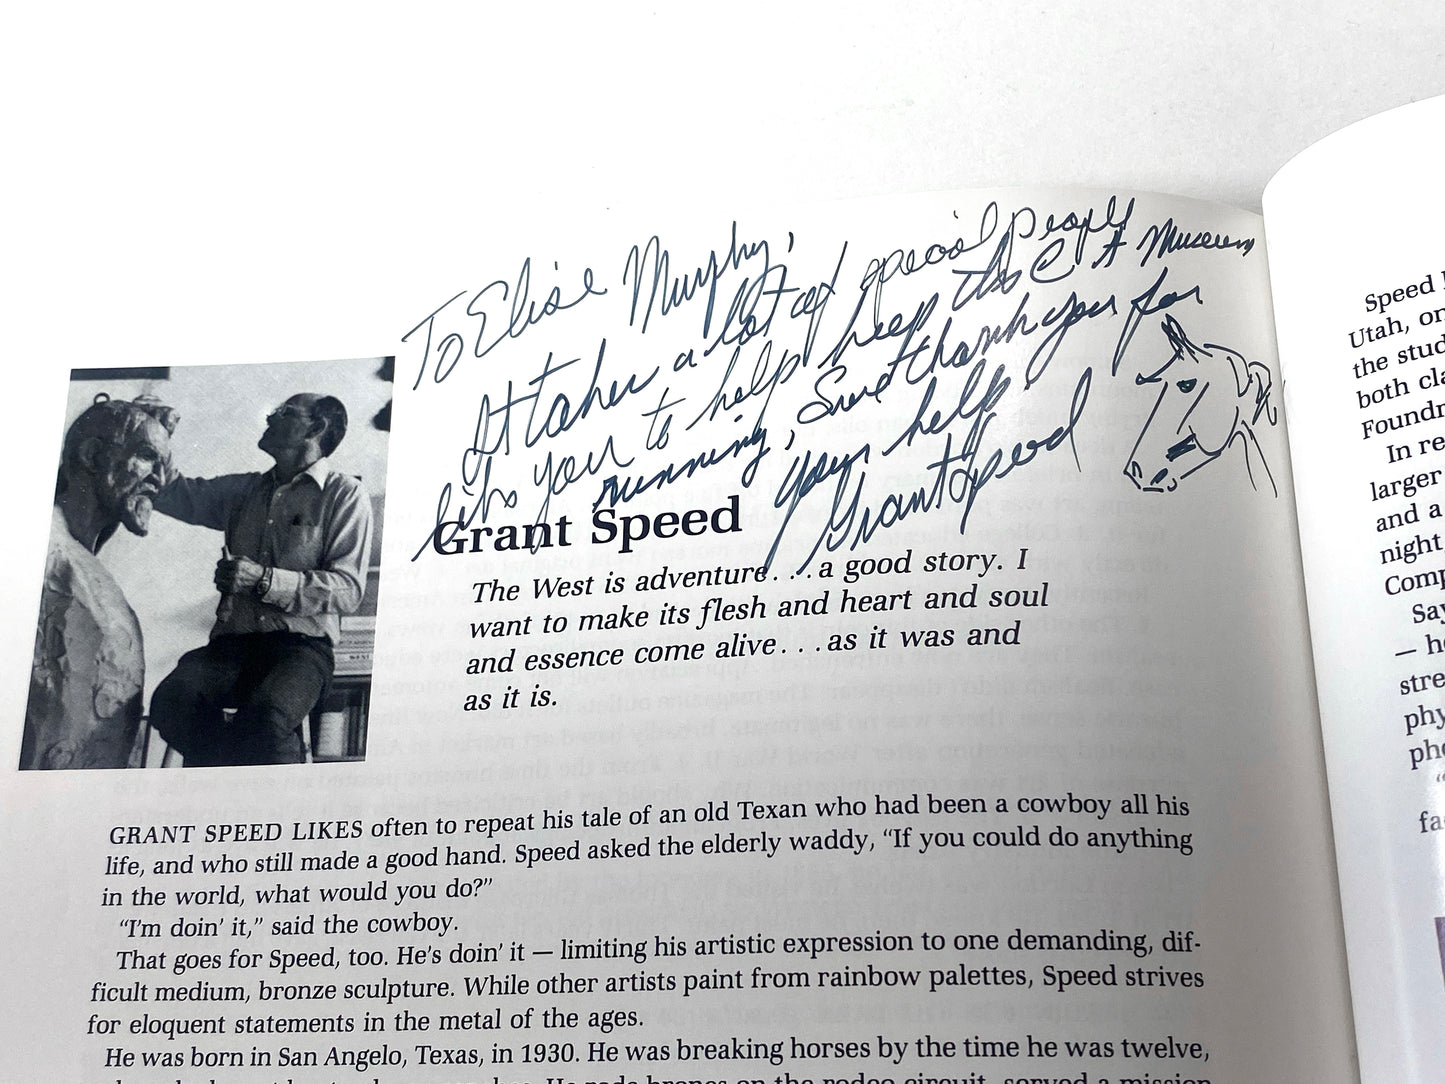 To Elise Murphy,
It takes a lot of special people
like you to help keep the C A Museum
running, Sure thank you for
your help.
Grant Speed
Grant Speed
The West is adventure. . .a good story. I
want to make its flesh and heart and soul
and essence come alive. . .as it was and
as it is.
GRANT SPEED LIKES often to repeat his tale of an old Texan who had been a cowboy all his
life, and who still made a good hand. Speed asked the elderly waddy, “If you could do anything
in the world, what would you do?”
“I’m doin’ it,” said the cowboy.
That goes for Speed, too. He’s doin’ it — limiting his artistic expression to one demanding, dif-
ficult medium, bronze sculpture. While other artists paint from rainbow palettes, Speed strives
for eloquent statements in the metal of the ages.
He was born in San Angelo, Texas, in 1930. He was breaking horses by the time he was twelve,
Speed
Utah, on
the stud
both cla
Foundr
In re
larger
and a
night
Comp
Say
— he
stre
phy
pho
fa